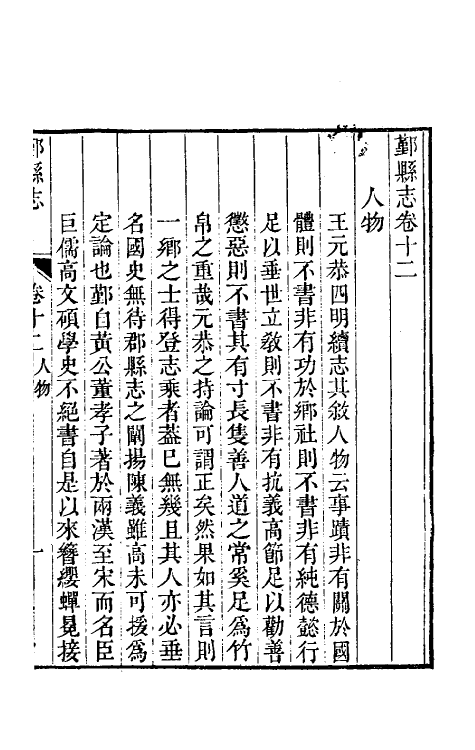 鄞縣志卷十二
人物
王元恭四明續志其敘人物云事蹟非有關於國
體則不書非有功於鄉社則不書非有純德懿行
足以垂世立敎則不書非有抗義高節足以勸善
懲惡則不書其有寸長隻善人道之常奚足爲竹
帛之重哉元恭之持論可謂正矣然果如其言則
一鄉之士得登志乘者蓋已無幾且其人亦必垂
名國史無待郡縣志之闡揚陳義雖高未可援爲
定論也鄞自黃公董孝子著於兩漢至宋而名臣
巨儒高文碩學史不絕書自是以來簪纓蟬冕接
鄞縣志
卷十二人物
一